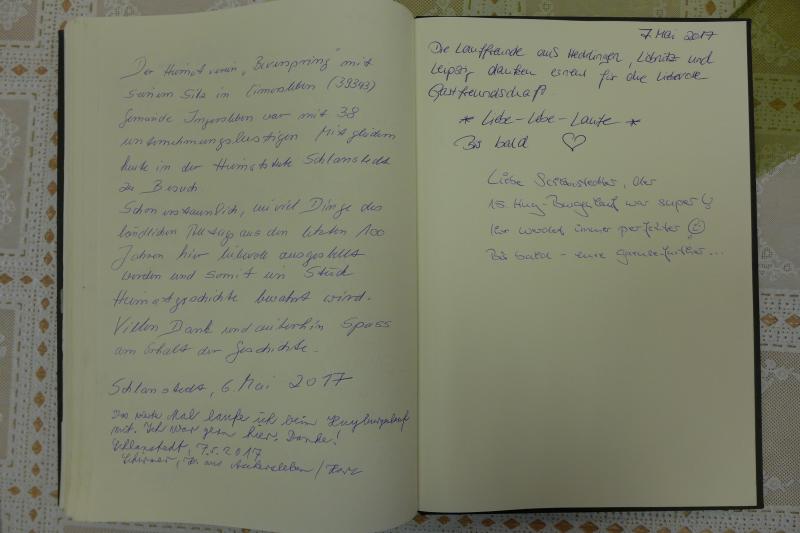 Der Heimatverein "Beverspring" mit
seinem Sitz in Eimersleben (39343)
Gemeinde Ingersleben war mit 38
unternehmungslustigen Mitgliedern
heute in der Heimatstube Schlanstedt
zu Besuch
Schon erstaunlich, wie viel Dinge des
ländlichen Alltags aus den letzten 100
Jahren hier liebevoll ausgestellt
werden und somit ein Stück
Heimatgeschichte bewahrt wird.
Vielen Dank und weiterhin Spass
am Erhalt der Geschichte.
Schlanstedt, 6. Mai 2017
Das Mal laufe ich beim Huyburglauf
mit. Ich war gern hier. Danke!
Schlanstedt, 7.5.2017
aus / Harz
7. Mai 2017
Die Lauffreunde aus Löbnitz und
Leipzig danken erneut für die liebevolle
Gastfreundschaft
* Liebe - Lebe - Laufe *
Bis bald ♡
Liebe Schlanstedter, der
15. Huy-Burgenlauf war super!
Ihr werdet immer perfekter ☺
Bis bald - eure